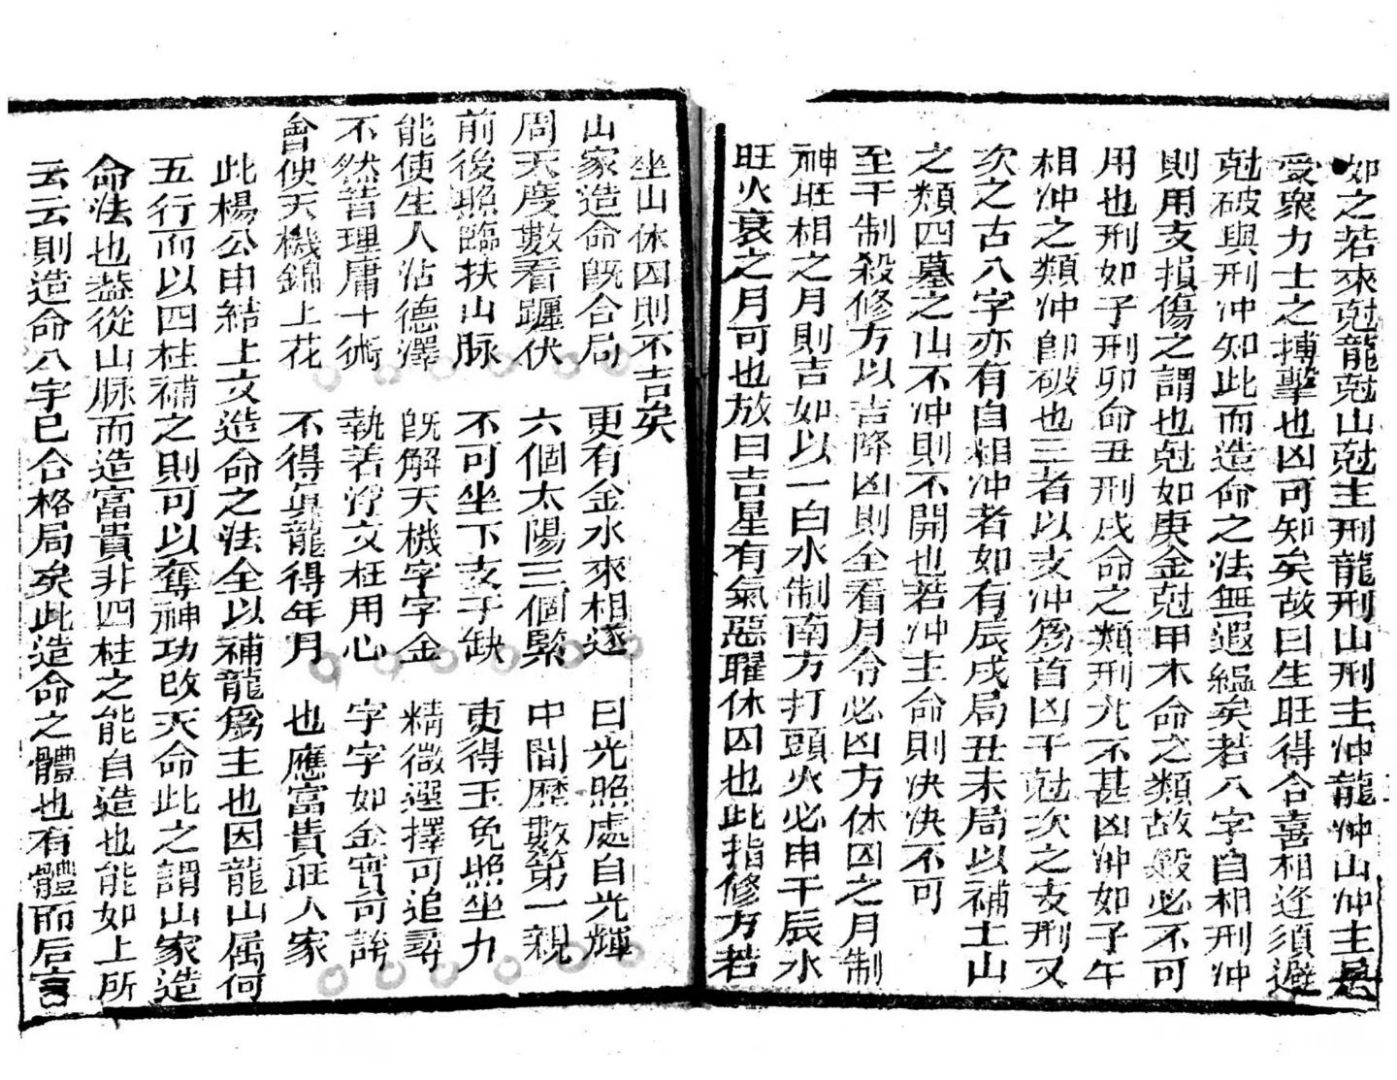 如之若來尅龍尅山尅主刑龍刑山刑主冲龍冲山冲主是
受衆力士之搏擊也凶可知矣故曰生旺得合喜相逢須避
尅破與刑冲知此而造命之法無遐縕矣若八字自相刑冲
則用支損傷之謂也尅如庚金尅甲木命之類故殺必不可
用也刑如子刑卯命丑刑戌命之類刑尤不甚凶冲如子午
相冲之類冲卽破也三者以支冲爲首凶干尅次之支刑又
次之古八字亦有自相冲者如有辰戌局丑未局以補土山
之類四墓之山不冲則不開也若冲主命則决决不可
至于制殺修方以吉降凶則全看月令必凶方休囚之月制
神旺相之月則吉如以一白水制南方打頭火必申子辰水
旺火衰之月可也放曰吉星有氣惡曜休囚也此指修方若
坐山休囚則不吉矣
山家造命旣合局 更有金水來相逐 曰光照處自光輝
周天度數看躔伏 六個太陽三個緊 中間歷數第一親
前後照臨扶山脉 不可坐下支子缺 更得玉兔照坐九
能使生人沾德澤 旣解天機字字金 精微選擇可追尋
不然皆理庸十術 執著浮文枉用心 字字如金實可誇
會使天機錦上花 不得眞龍得年月 也應富貴旺人家
此楊公申結上文造命之法全以補龍爲主也因龍山属何
五行而以四柱補之則可以奪神功改天命此之謂山家造
命法也葢從山脉而造富貴非四柱之能自造也能如上所
云云則造命八字已合格局矣此造命之體也有體而后言